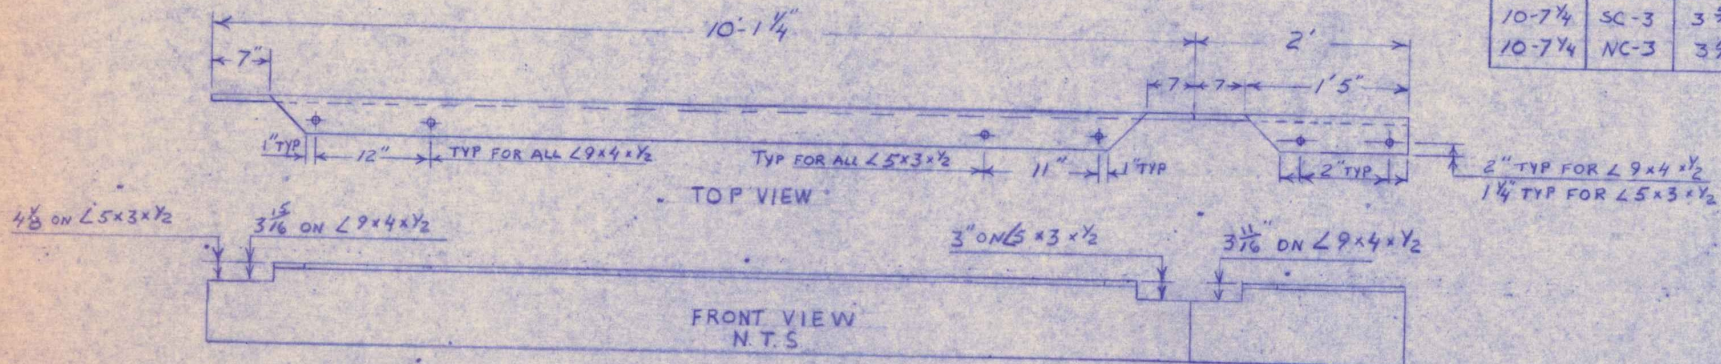 10-7¼ SC-3
10-7¼ NC-3
10'-1¼"
2'
7"
7 7 1'5"
1" TYP 12" TYP FOR ALL ∠9x4x½
TYP FOR ALL ∠5x3x½ 11" 1" TYP
2" TYP
2" TYP FOR ∠9x4x½
1¼" TYP FOR ∠5x3x½
TOP VIEW
4⅛ ON ∠5x3x½
3 15/16 ON ∠9x4x½
3" ON ∠5x3x½
3 11/16" ON ∠9x4x½
FRONT VIEW
N.T.S